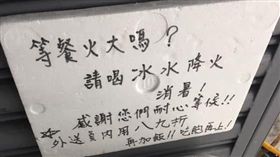 等餐火大嗎？
請喝冰水降火
消暑！
感謝您們耐心等候!!
☆外送員內用八九折
再加飯!!吃飽再上!